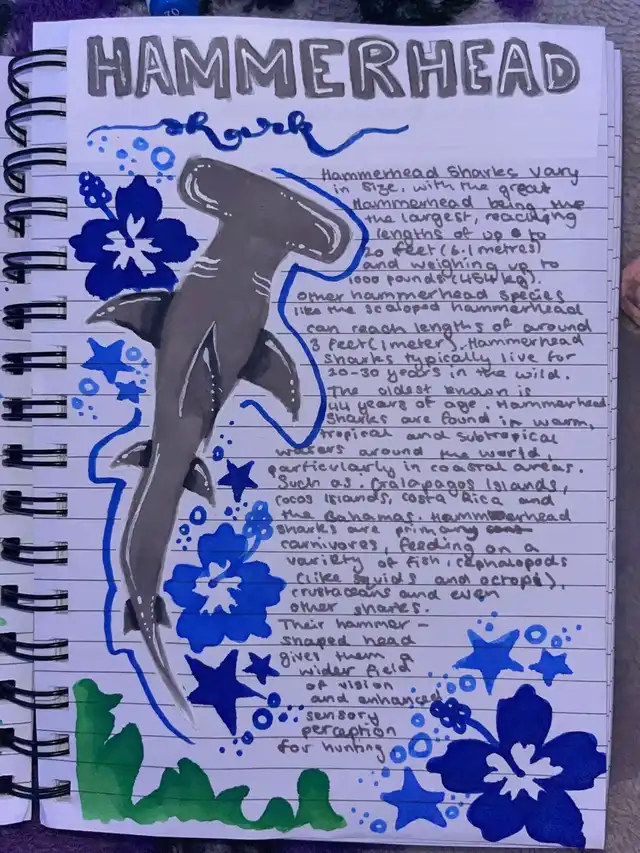 70
HAMMERHEAD
shark
Hammerhead Sharks vary
in size, with the great
Hammerhead being the
the largest, reaching
lengths of up to to
20 feet (6.1 metres)
and weighing up to
1000 pounds (454 kg).
Other hammerhead species
like the scaloped hammerhead
can reach lengths of around
3 feet (1 meter). Hammerhead
sharks typically live for
20-30 years in the wild.
The oldest known is
44 years of age. Hammerhead
Sharks are found in warm,
tropical and subtropical
waters around the world,
particularly in coastal areas.
Such as. Galapagos Islands,
Cocos Islands, Costa Rica and
the Bahamas. Hammerhead
sharks are primary
carnivores, feeding on a
variety of fish, cephalopods
(like squids and octopi),
crustaceans and even
other sharks.
Their hammer-
shaped head
gives them a
wider field
of vision
and enhanced
sensory
perception
for hunting